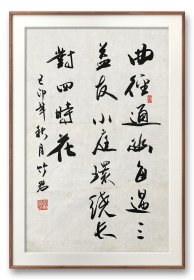 曲徑通幽自過三
益友小庭環繞长
對四時花
己卯年秋月